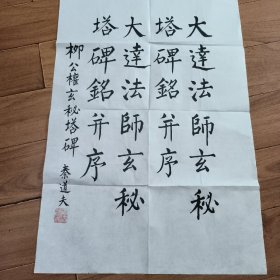 大達法師玄秘
塔碑銘并序
大達法師玄秘
塔碑銘并序
柳公權玄秘塔碑 秦道夫